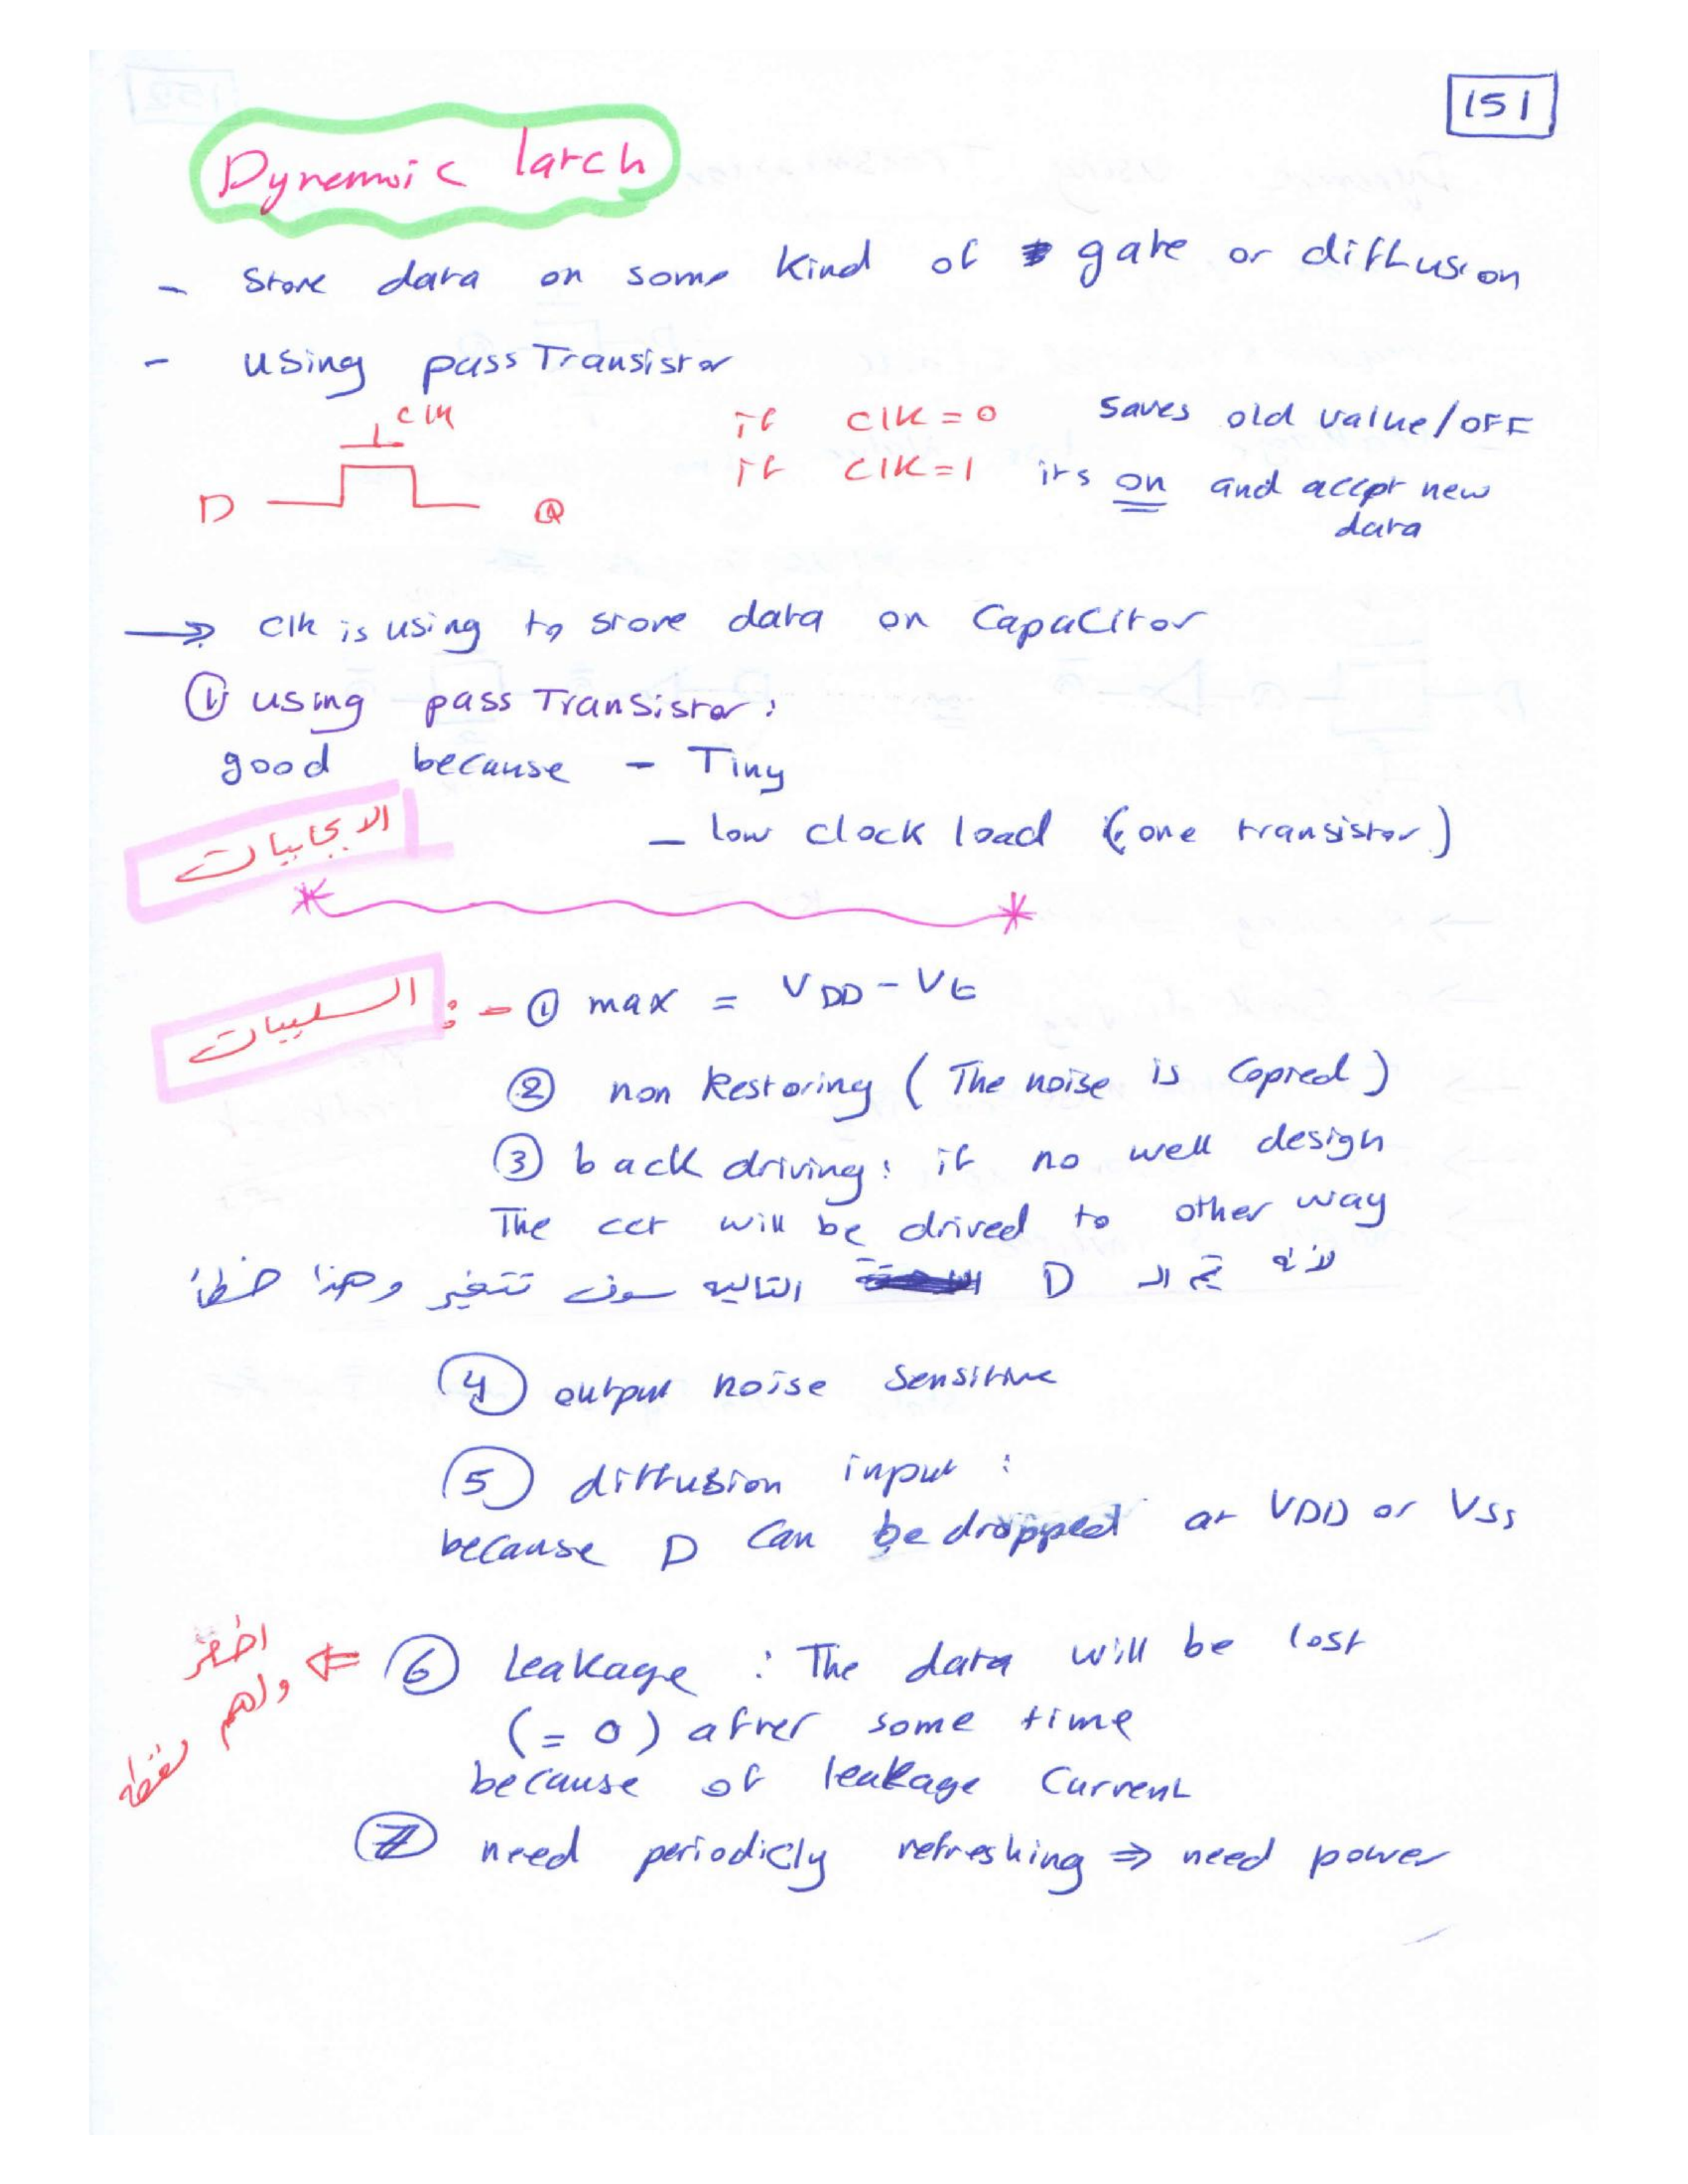 151
Dynemic latch
- Store data on some kind of gate or diffusion
- using pass Transistor
clk
D Q
if clk = 0 saves old value/OFF
if clk = 1 its on and accept new
data
→ clk is using to store data on Capacitor
① using pass Transistor:
good because - Tiny
- low clock load (one transistor)
الايجابيات
السلبيات : - ① max = VDD - Vt
② non Restoring (The noise is Copied)
③ back driving: if no well design
The cct will be drived to other way
لأنه قيم الـ D التاليه سوف تتغير وهذا خطأ
④ output noise sensitive
⑤ diffusion input :
because D can be dropped at VDD or VSS
اخطر
واهم نقطه
⇐ ⑥ Leakage : The data will be lost
(= 0) after some time
because of leakage Current
⑦ need periodicly refreshing ⇒ need power